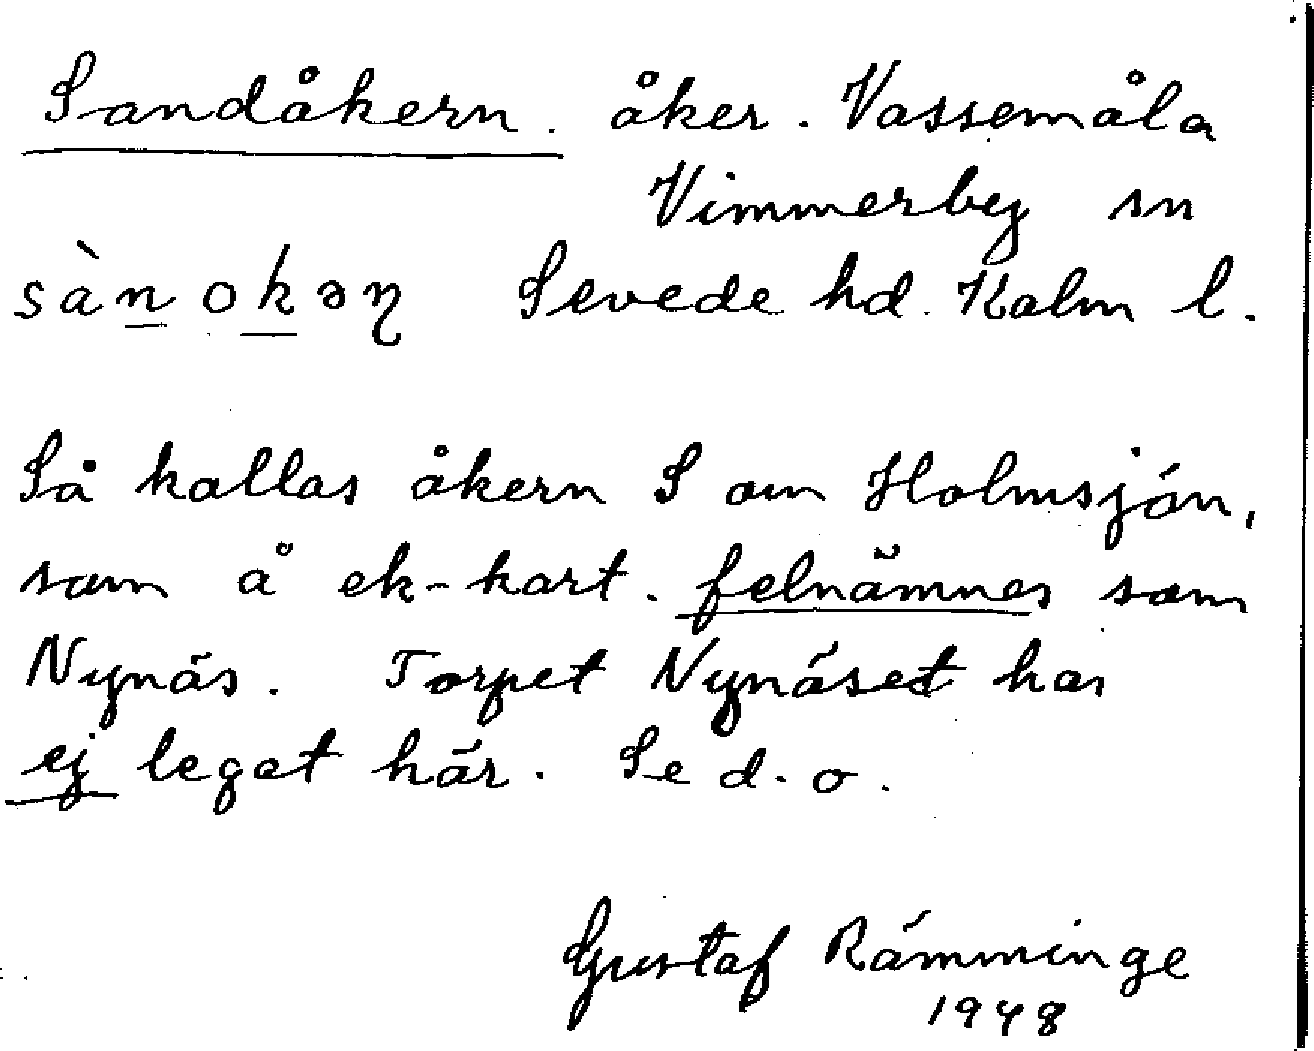 Sandåkern. åker. Vassemåla
Vimmerby sn
sànokəɳ Sevede hd. Kalm l.
Så kallas åkern S om Holmsjön,
som å ek-kart. felnämnes som
Nynäs. Torpet Nynäset har
ej legat här. Se d.o.
Gustaf Rämminge
1948